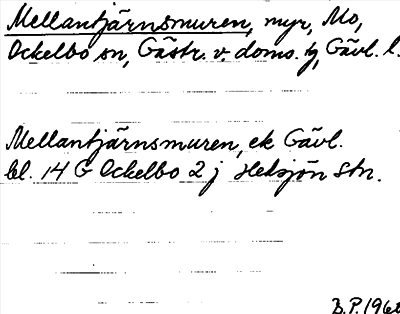 Mellantjärnsmuren, myr, Mo,
Ockelbo sn, Gästr. v. doms. tg, Gävl. l.
Mellantjärnsmuren, ek Gävl.
bl. 14 G Ockelbo 2 j Heksjön Stn.
B.P. 1968